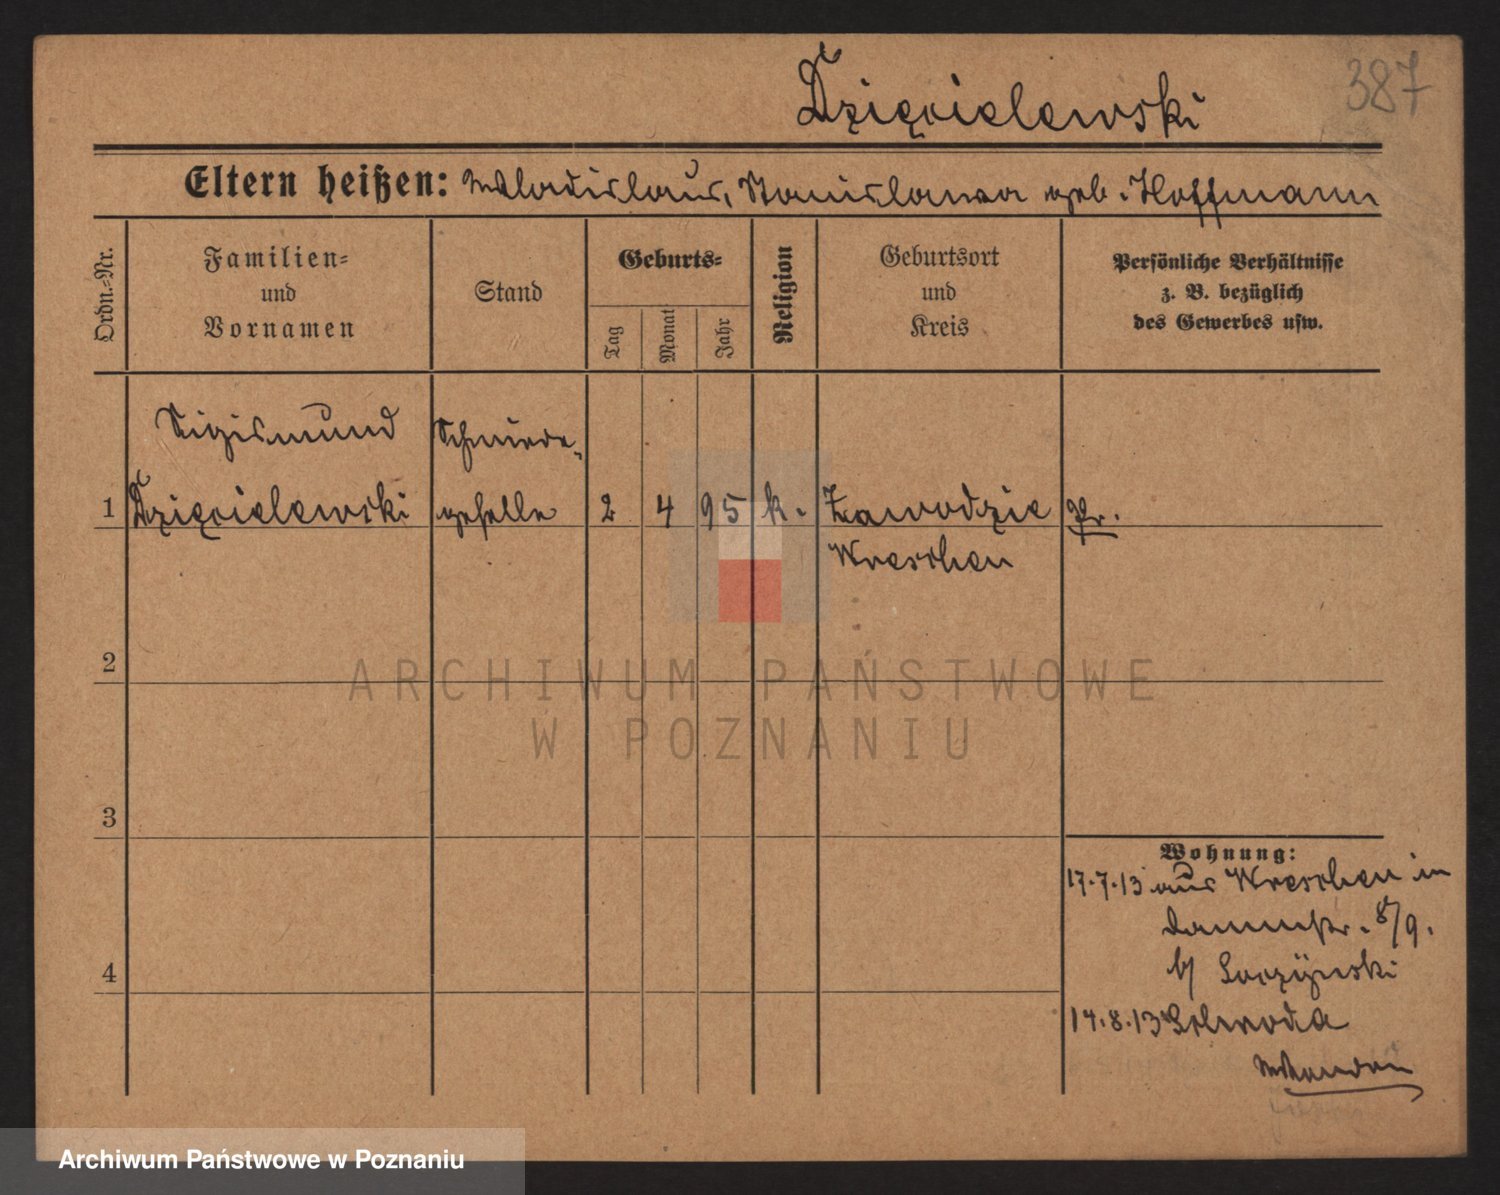 387
Dzięcielewski
Eltern heißen: Wladislaus, Stanislawa geb. Hoffmann
Ordn.=Nr.
Familien=
und
Vornamen
Stand
Geburts=
Tag
Monat
Jahr
Religion
Geburtsort
und
Kreis
Persönliche Verhältnisse
z. B. bezüglich
des Gewerbes usw.
Sigismund Schmiede-
1 Dzięcielewski geselle 2 4 95 k. Zawodzie Pr.
Wreschen
2
ARCHIWUM PAŃSTWOWE
W POZNANIU
3
Wohnung:
17.7.13 aus Wreschen in
Dammstr. 8/9.
b/
4
14.8.13
Archiwum Państwowe w Poznaniu